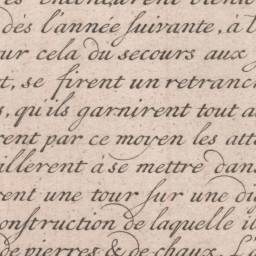 dés l'année suivante, à l
ur cela du secours aux
t, se firent un retranch
s, qu'ils garnirent tout a
rent par ce moyen les atta
illerent à se mettre dans
rent une tour sur une di
onstruction de laquelle il
de pierres & de chaux. L'a